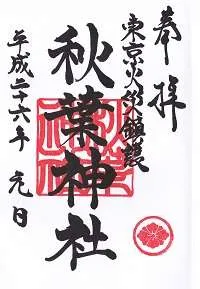 奉拝
東京火災鎮護
秋葉神社
平成二十六年 元日